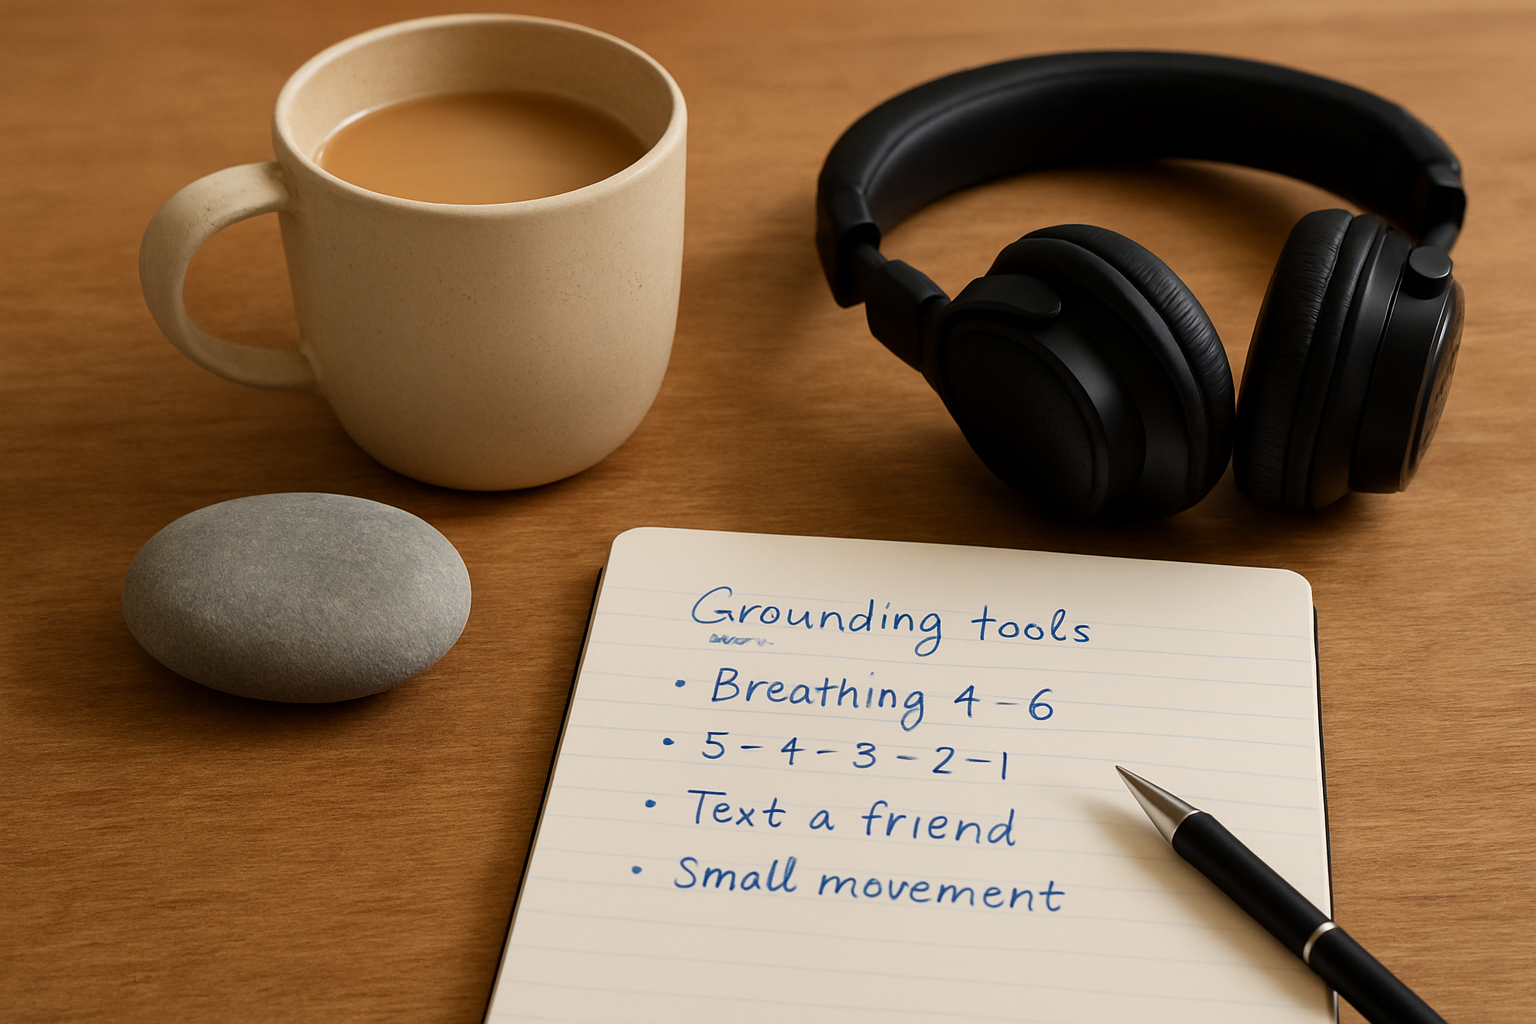 Grounding tools
• Breathing 4-6
• 5-4-3-2-1
• Text a friend
• Small movement